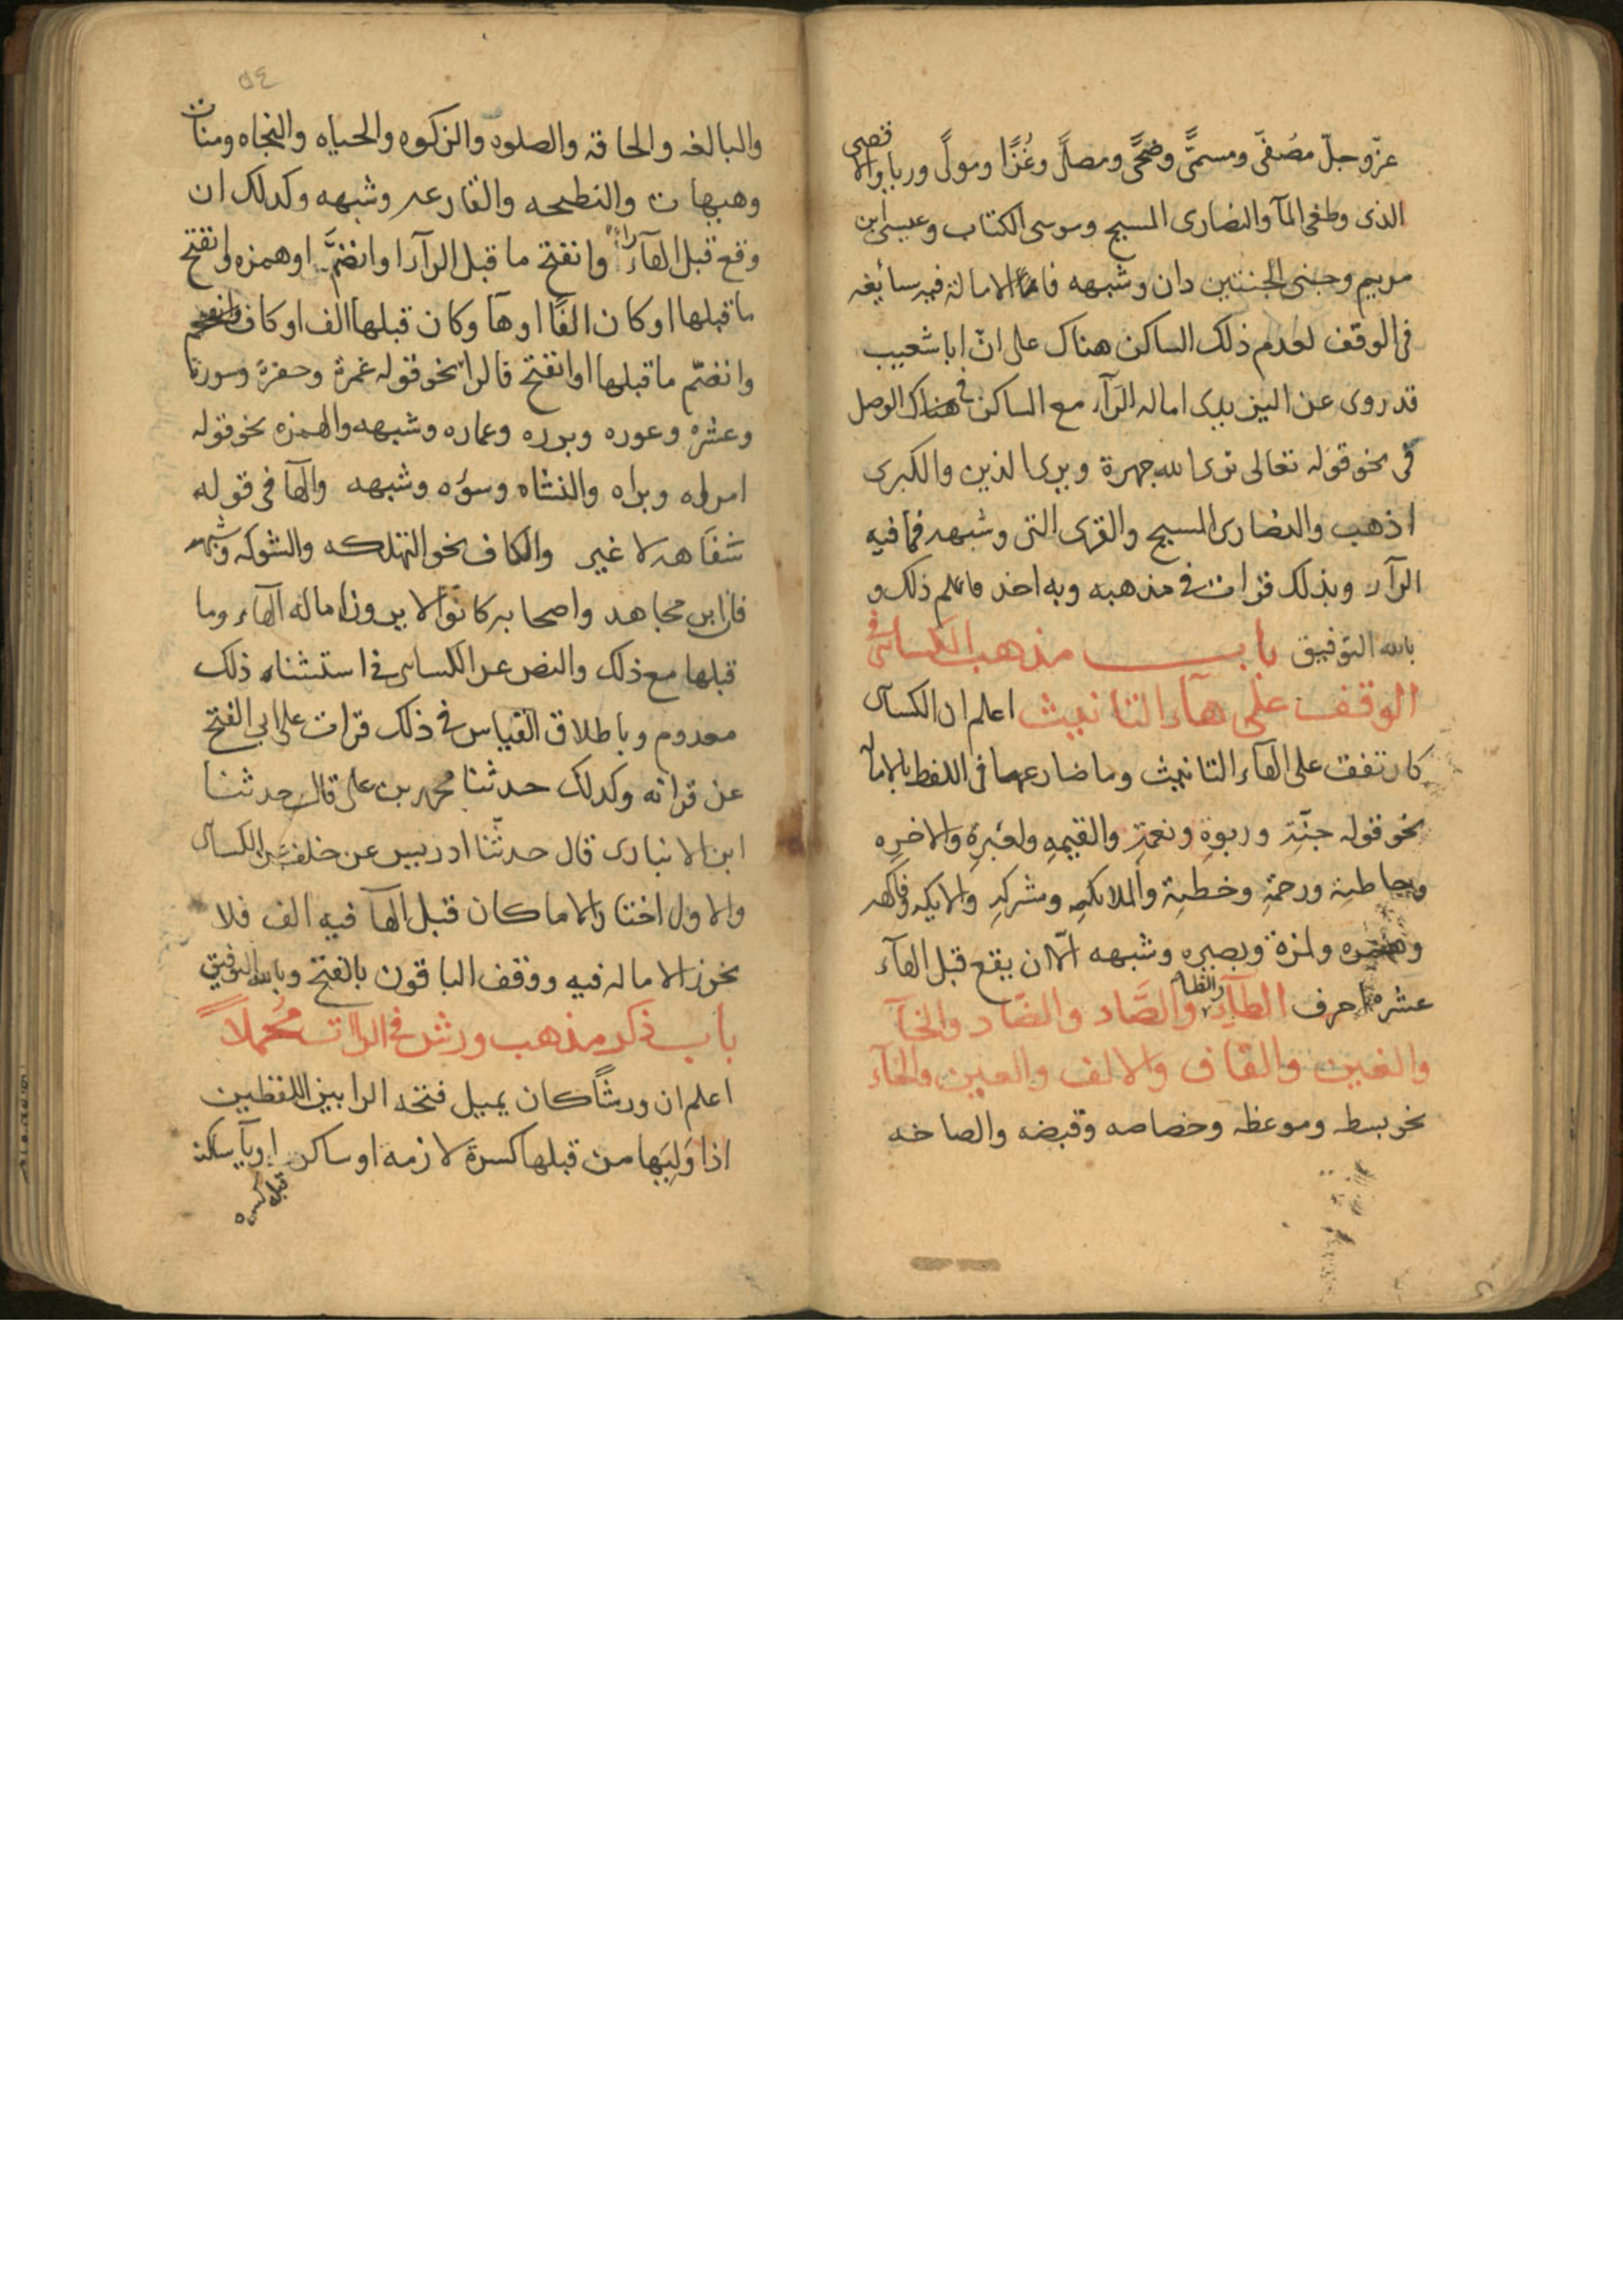 عزّوجلّ مصفّى ومسمّى وضحًى ومصلًى وغُزًّا ومولًى وربا والاقصى
الذى وطغى المآ والنصارى المسيح وموسى الكتاب وعيسى ابن
مريم وجنى الجنتين دان وشبهه فان الامالة فيه سائغه
فى الوقف لعدم ذلك الساكن هناك على انّ ابا شعيب
قد روى عن اليزيدى اماله الرّآء مع الساكن فى الوصل
فى نحو قوله تعالى نرى الله جهرة ويرى الذين والكبرى
اذهب والنصارى المسيح والقرى التى وشبهه فما فيه
الرآء وبذلك قرات فى مذهبه وبه اخذ فاعلم ذلك و
بالله التوفيق باب مذهب الكسائى فى
الوقف على هآء التانيث اعلم ان الكسآى
كان تقف على الهآء التانيث وما ضارعها فى اللفظ بالاماله
نحو قوله جنّة وربوة ونعمة والقيمه ولعبرة والاخره
وخاطية ورحمة وخطية والملائكه ومشركه والايكه وفاكهه
وهمزه ولمزة وبصيره وشبهه الّا ان يقع قبل الهآء
عشرة احرف الطآء والظاء والصّاد والضّاد والخآ
والغين والقاف والالف والعين والحآء
نحو بسطه وموعظه وخصاصه وقبضه والصاخه
٥٤
والبالغه والحاقه والصلوه والزكوه والحياه والنجاه ومنات
وهيهات والنطيحه والقارعه وشبهه وكذلك ان
وقع قبل الهآء راء وانفتح ما قبل الرآء او انضمّ او همزه وانفتح
ما قبلها او كان الفًا او هآ وكان قبلها الف او كاف
وانضمّ ما قبلها او انفتح فالرا نحو قوله غمرة وحفرة وسورة
وعشرة وعوره وبرره وعماره وشبهه والهمزه نحو قوله
امراه وبراه والنشاه وسوءه وشبهه والهآ فى قوله
سَفَاهه لا غير والكاف نحو التهلكه والشوكه وشبهه
فان ابن مجاهد واصحابه كانوا لا يرون اماله الهآء وما
قبلها مع ذلك والنص عن الكساى فى استثناء ذلك
معدوم وباطلاق القياس فى ذلك قرات على ابى الفتح
عن قراته وكذلك حدثنا محمد بن على قال حدثنا
ابن الانبارى قال حدثنا ادريس عن خلف عن الكسآى
والاول اختار الا ما كان قبل الهآ فيه الف فلا
نحوز الاماله فيه ووقف الباقون بالفتح وبالله التوفيق
باب ذكر مذهب ورش فى الراات مُجملاً
اعلم ان ورشًا كان يميل فتحه الرا بين اللفظين
اذا وَلِيَها من قبلها كسرة لازمه او ساكن او يآ ساكنه
قبله كسره